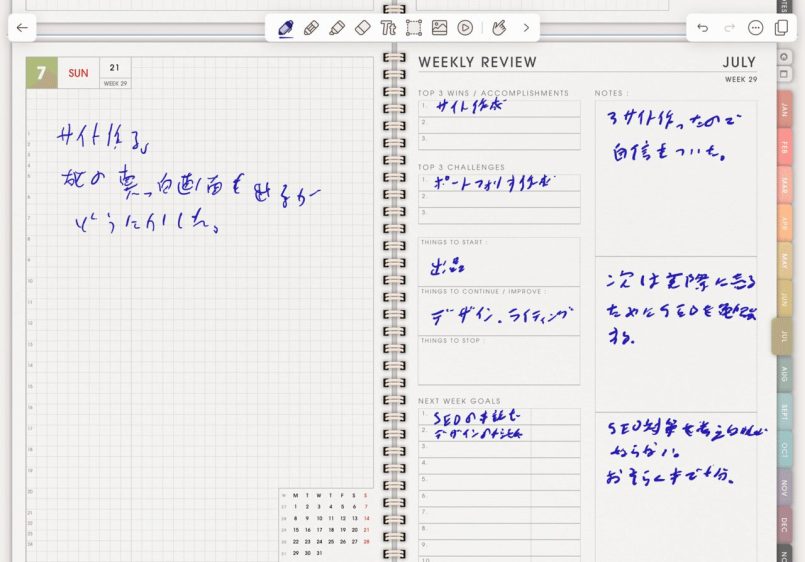 7 SUN 21
WEEK 29
サイト作る。
真っ白画面
どうにかした。
M T W T F S S
1 2 3 4 5 6 7
8 9 10 11 12 13 14
15 16 17 18 19 20 21
22 23 24 25 26 27 28
29 30 31
WEEKLY REVIEW JULY
WEEK 29
TOP 3 WINS / ACCOMPLISHMENTS
1. サイト作成
2.
3.
TOP 3 CHALLENGES
1. ポートフォリオ作成
2.
3.
THINGS TO START :
出品
THINGS TO CONTINUE / IMPROVE :
デザイン、ライティング
THINGS TO STOP :
NEXT WEEK GOALS
1. SEOの
2. デザインの
3.
4.
5.
6.
7.
8.
9.
10.
NOTES :
3サイト作ったので
自信もついた。
次は実際に売る
ためにSEOを勉強
する。
SEO対策を考え
ならない。
おそらくまだ十分。
JAN
FEB
MAR
APR
MAY
JUN
JUL
AUG
SEPT
OCT
NOV
DEC